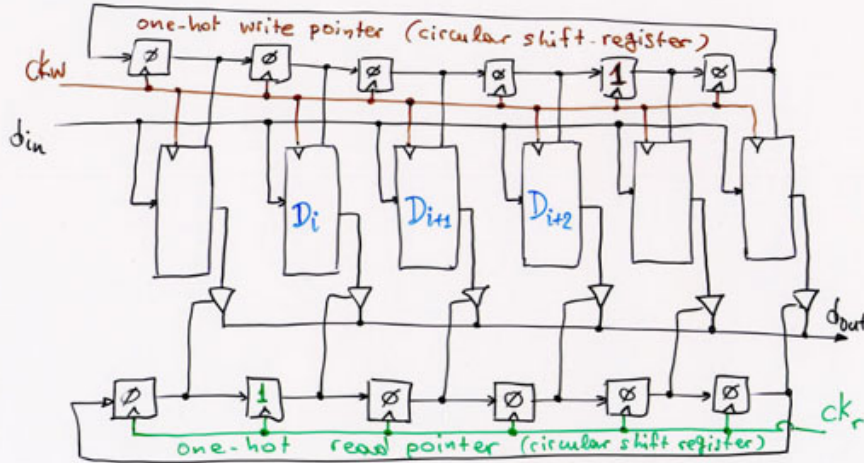 one-hot write pointer (circular shift-register)
∅ ∅ ∅ ∅ 1 ∅
ckw
din
Di Di+1 Di+2
dout
∅ 1 ∅ ∅ ∅ ∅
ckr
one-hot read pointer (circular shift register)